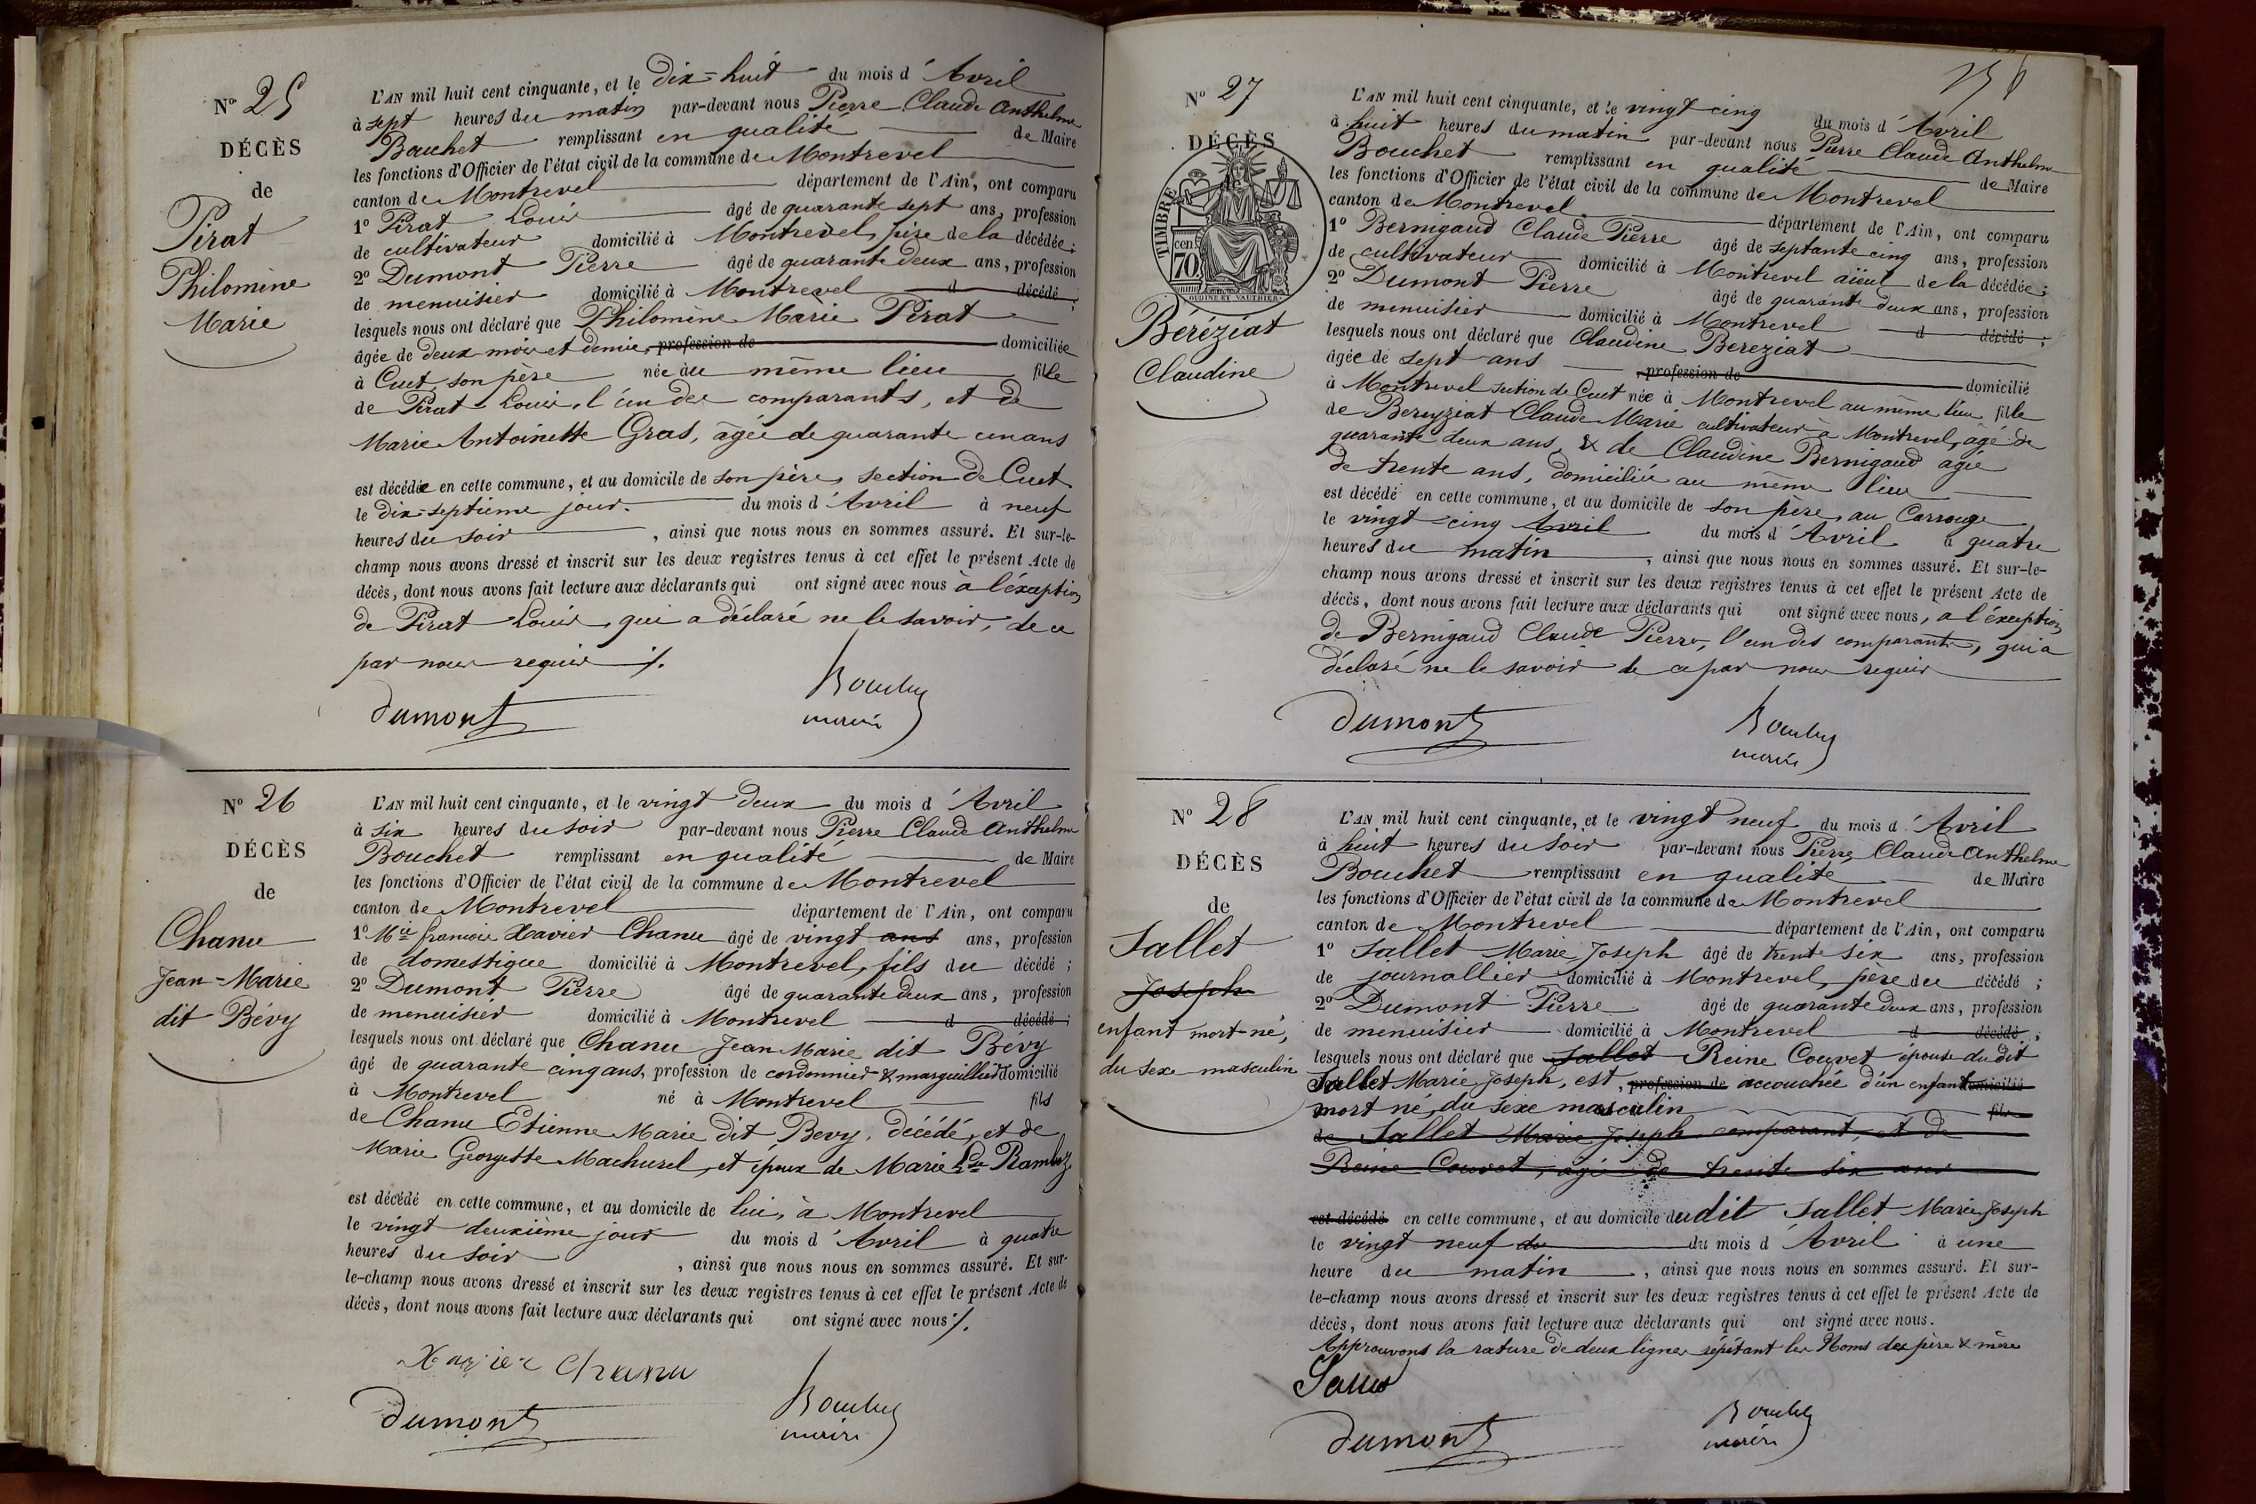 Nº 25
DÉCÈS
de
Pirat
Philomène
Marie
L'AN mil huit cent cinquante, et le dix-huit du mois d'Avril
à sept heures du matin par-devant nous Pierre Claude Anthelme
Bouchet remplissant en qualité de Maire
les fonctions d'Officier de l'état civil de la commune de Montrevel
canton de Montrevel département de l'Ain, ont comparu
1º Pirat Louis âgé de quarante sept ans, profession
de cultivateur domicilié à Montrevel, père de la décédée;
2º Dumont Pierre âgé de quarante deux ans, profession
de menuisier domicilié à Montrevel d décédé;
lesquels nous ont déclaré que Philomène Marie Pirat
âgée de deux mois et demie, profession de domiciliée
à Cuet, son père née au même lieu fille
de Pirat Louis, l'un des comparants, et de
Marie Antoinette Gras, âgée de quarante un ans
est décédée en cette commune, et au domicile de son père, section de Cuet
le dix-septième jour du mois d'Avril à neuf
heures du soir, ainsi que nous nous en sommes assuré. Et sur-le-
champ nous avons dressé et inscrit sur les deux registres tenus à cet effet le présent Acte de
décès, dont nous avons fait lecture aux déclarants qui ont signé avec nous à l'éxception
de Pirat Louis, qui a déclaré ne le savoir, de ce
par nous requis ./.
Dumont
Bouchet
maire
Nº 26
DÉCÈS
de
Chanu
Jean-Marie
dit Bévy
L'AN mil huit cent cinquante, et le vingt deux du mois d'Avril
à six heures du soir par-devant nous Pierre Claude Anthelme
Bouchet remplissant en qualité de Maire
les fonctions d'Officier de l'état civil de la commune de Montrevel
canton de Montrevel département de l'Ain, ont comparu
1º Mie françois Xavier Chanu âgé de vingt ans ans, profession
de domestique domicilié à Montrevel, fils du décédé;
2º Dumont Pierre âgé de quarante deux ans, profession
de menuisier domicilié à Montrevel d décédé;
lesquels nous ont déclaré que Chanu Jean Marie dit Bévy
âgé de quarante cinq ans, profession de cordonnier & marguillier domicilié
à Montrevel né à Montrevel fils
de Chanu Etienne Marie dit Bevy, décédé, et de
Marie Georgette Machurel, et époux de Marie Lse Rambuz
est décédé en cette commune, et au domicile de lui, à Montrevel
le vingt deuxième jour du mois d'Avril à quatre
heures du soir, ainsi que nous nous en sommes assuré. Et sur-
le-champ nous avons dressé et inscrit sur les deux registres tenus à cet effet le présent Acte de
décès, dont nous avons fait lecture aux déclarants qui ont signé avec nous ./.
Xavier Chanu
Dumont
Bouchet
maire
Nº 27
DÉCÈS
TIMBRE
cen
70
OUDINÉ ET VAUTHIER
Béréziat
Claudine
L'AN mil huit cent cinquante, et le vingt cinq du mois d'Avril
à huit heures du matin par-devant nous Pierre Claude Anthelme
Bouchet remplissant en qualité de Maire
les fonctions d'Officier de l'état civil de la commune de Montrevel
canton de Montrevel département de l'Ain, ont comparu
1º Bernigaud Claude Pierre âgé de septante cinq ans, profession
de cultivateur domicilié à Montrevel aïeul de la décédée;
2º Dumont Pierre âgé de quarante deux ans, profession
de menuisier domicilié à Montrevel d décédé;
lesquels nous ont déclaré que Claudine Bereziat
âgée de sept ans, profession de domicilié
à Montrevel section de Cuet née à Montrevel au même lieu fille
de Bereyziat Claude Marie cultivateur à Montrevel, âgé de
quarante deux ans, & de Claudine Bernigaud agée
de trente ans, domiciliée au même lieu
est décédé en cette commune, et au domicile de son père, au Carrouge
le vingt-cinq Avril du mois d'Avril à quatre
heures du matin, ainsi que nous nous en sommes assuré. Et sur-le-
champ nous avons dressé et inscrit sur les deux registres tenus à cet effet le présent Acte de
décès, dont nous avons fait lecture aux déclarants qui ont signé avec nous, a l'éxception
de Bernigaud Claude Pierre, l'un des comparants, qui a
déclaré ne le savoir de ce par nous requis
Dumont
Bouchet
maire
Nº 28
DÉCÈS
de
Sallet
Joseph
enfant mort-né,
du sexe masculin
L'AN mil huit cent cinquante, et le vingt neuf du mois d'Avril
à huit heures du soir par-devant nous Pierre Claude Anthelme
Bouchet remplissant en qualité de Maire
les fonctions d'Officier de l'état civil de la commune de Montrevel
canton de Montrevel département de l'Ain, ont comparu
1º Sallet Marie Joseph âgé de trente six ans, profession
de journallier domicilié à Montrevel, père du décédé;
2º Dumont Pierre âgé de quarante deux ans, profession
de menuisier domicilié à Montrevel d décédé;
lesquels nous ont déclaré que Sallet Reine Couvet épouse du dit
Sallet Marie Joseph, est, profession de accouchée d'un enfant domicilié
mort né, du sexe masculin fils
de Sallet Marie Joseph comparant, et de
Reine Couvet, agée de trente six ans
est décédé en cette commune, et au domicile dudit Sallet Marie Joseph
le vingt neuf du du mois d'Avril à une
heure du matin, ainsi que nous nous en sommes assuré. Et sur-
le-champ nous avons dressé et inscrit sur les deux registres tenus à cet effet le présent Acte de
décès, dont nous avons fait lecture aux déclarants qui ont signé avec nous.
Approuvons la rature de deux lignes répétant les Noms des père & mère
Dumont
Bouchet
maire